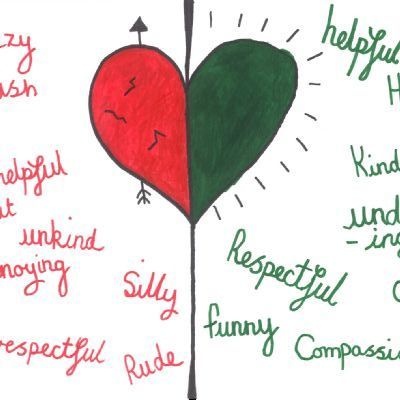 zy
ish
helpful
unkind
noying
Silly
respectful
Rude
helpful
Kind
und
- ing
Respectful
funny
Compassi